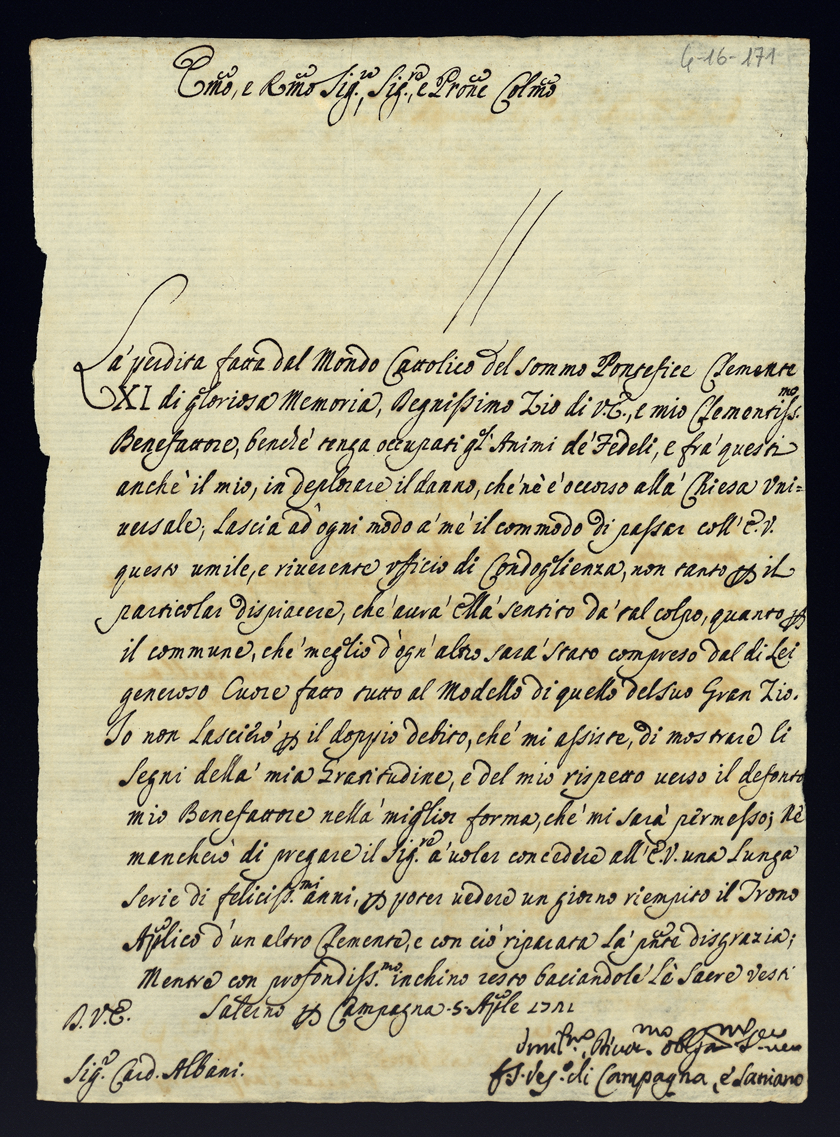 4-16-171
Em̃o, e Rm̃o Sig.re, Sig.re, e Pron̄e Colm̃o
La' perdita fatta dal Mondo Cattolico del sommo Pontefice Clemente
XI di gloriosa Memoria, Degnissimo Zio di V.E., e mio Clementiss.mo
Benefattore, benche' tenga occupati gl' Animi de' Fedeli, e fra' questi
anche il mio, in deplorare il danno, che' nè è occorso alla' Chiesa Vni=
uersale; Lascia ad' ogni modo a' me' il commodo di passar coll' E.V.
questo umile, e riuerente vfficio di Condoglienza, non tanto ꝑ il
particolar dispiacere, che' aurà Ella' sentito da' tal colpo, quanto ꝑ
il commune, che' meglio d'ogn' altro sarà stato compreso dal di Lei
generoso Cuore fatto tutto al Modello di quello del suo Gran Zio.
Io non Lascierò ꝑ il doppio debito, che' mi assiste, di mostrare li
segni della' mia Gratitudine, e del mio rispetto uerso il defonto
mio Benefattore nella' miglior forma, che' mi sarà permesso; Nè
mancherò di pregare il Sig.re a' uoler concedere all' E.V. una Lunga
serie di feliciss.mi anni, ꝑ poter uedere un giorno riempito il Trono
Aplico d'un altro Clemente, e con ciò riparata La' pnte disgrazia;
Mentre con profondiss.mo inchino resto baciandole' Le Sacre Vesti
D.V.E. Salerno ꝑ Campagna 5 Aple 1721
Vmil.mo Diuot.mo oblg.mo Ser.
Sig.r Card. Albani. Ves.o di Campagna, e Satriano